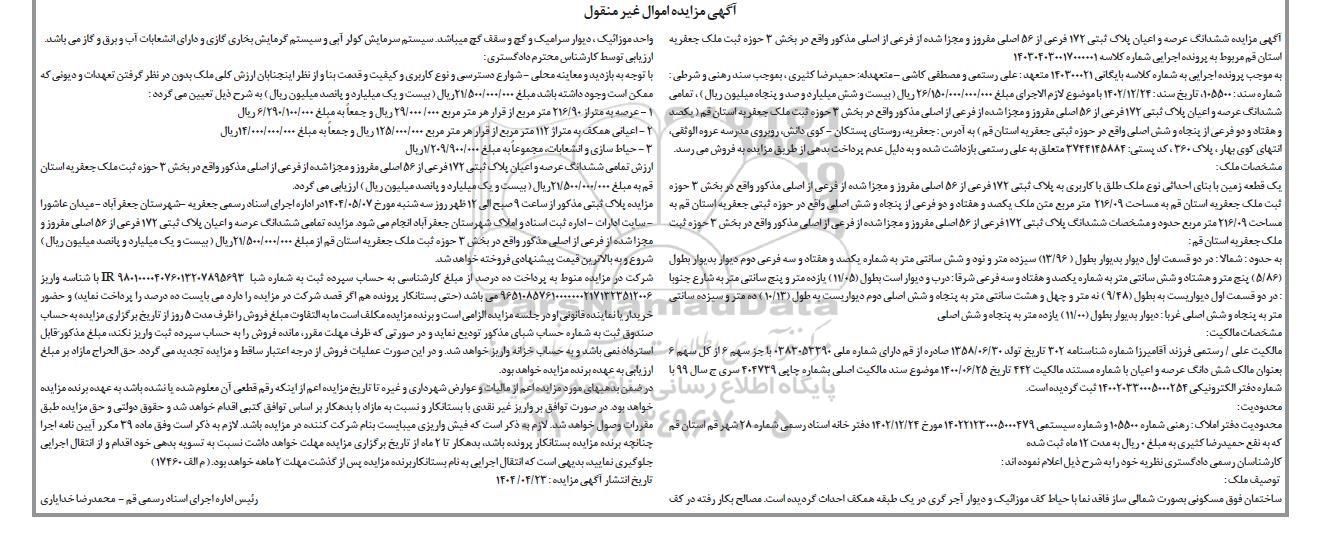 آگهی مزایده اموال غیر منقول
آگهی مزایده ششدانگ عرصه و اعیان پلاک ثبتی ۱۷۲ فرعی از ۵۶ اصلی مفروز و مجزا شده از فرعی از اصلی مذکور واقع در بخش ۳ حوزه ثبت ملک جعفریه
استان قم مربوط به پرونده اجرایی شماره کلاسه ۱۴۰۳۰۴۰۳۰۰۱۷۰۰۰۰۰۱
به موجب پرونده اجرایی به شماره کلاسه بایگانی ۱۴۰۳۰۰۰۲۱ متعهد : علی رستمی و مصطفی کاشی - متعهدله: حمیدرضا کثیری ، بموجب سند رهنی و شرطی :
شماره سند : ۱۰۵۵۰۰، تاریخ سند : ۱۴۰۲/۱۲/۲۴ با موضوع لازم الاجرای مبلغ ۲۶/۱۵۰/۰۰۰/۰۰۰/۰۰۰ ریال ( بیست و شش میلیارد و صد و پنجاه میلیون ریال ) ، تمامی
ششدانگ عرصه و اعیان پلاک ثبتی ۱۷۲ فرعی از ۵۶ اصلی مفروز و مجزا شده از فرعی از اصلی مذکور واقع در بخش ۳ حوزه ثبت ملک جعفریه استان قم ( یکصد
و هفتاد و دو فرعی از پنجاه و شش اصلی واقع در حوزه ثبتی جعفریه استان قم ) به آدرس : جعفریه، روستای پستکان - کوی دانش، روبروی مدرسه عروه الوثقی،
انتهای کوی بهار ، پلاک ۳۶۰ ، کد پستی: ۳۷۴۴۱۴۵۸۸۴ متعلق به علی رستمی بازداشت شده و به دلیل عدم پرداخت بدهی از طریق مزایده به فروش می رسد.
مشخصات ملک :
یک قطعه زمین با بنای احداثی نوع ملک طلق با کاربری به پلاک ثبتی ۱۷۲ فرعی از ۵۶ اصلی مفروز و مجزا شده از فرعی از اصلی مذکور واقع در بخش ۳ حوزه
ثبت ملک جعفریه استان قم به مساحت ۲۱۶/۰۹ متر مربع متن ملک یکصد و هفتاد و دو فرعی از پنجاه و شش اصلی واقع در حوزه ثبتی جعفریه استان قم به
مساحت ۲۱۶/۰۹ متر مربع حدود و مشخصات ششدانگ پلاک ثبتی ۱۷۲ فرعی از ۵۶ اصلی مفروز و مجزا شده از فرعی از اصلی مذکور واقع در بخش ۳ حوزه ثبت
ملک جعفریه استان قم :
به حدود : شمالا : در دو قسمت اول دیوار بدیوار بطول ( ۱۳/۹۶) سیزده متر و نود و شش سانتی متر به شماره یکصد و هفتاد و سه فرعی دوم دیوار بدیوار بطول
(۵/۸۶) پنج متر و هشتاد و شش سانتی متر به شماره یکصد و هفتاد و سه فرعی شرقا : درب و دیوار است بطول (۱۱/۰۵) یازده متر و پنج سانتی متر به شارع جنوبا
: در دو قسمت اول دیواریست به طول (۹/۴۸) نه متر و چهل و هشت سانتی متر به پنجاه و شش اصلی دوم دیواریست به طول (۱۰/۱۳) ده متر و سیزده سانتی
متر به پنجاه و شش اصلی غربا : دیوار بدیوار بطول (۱۱/۰۰) یازده متر به پنجاه و شش اصلی
مشخصات مالکیت:
مالکیت علی / رستمی فرزند آقامیرزا شماره شناسنامه ۳۰۲ تاریخ تولد ۱۳۵۸/۰۶/۳۰ صادره از قم دارای شماره ملی ۰۳۸۳۰۵۳۳۹۰ با جز سهم ۶ از کل سهم ۶
بعنوان مالک شش دانگ عرصه و اعیان با شماره مستند مالکیت ۴۴۲ تاریخ ۱۴۰۰/۰۶/۲۵ موضوع سند مالکیت اصلی بشماره چاپی ۴۰۴۷۳۹ سری ج سال ۹۹ با
شماره دفتر الکترونیکی ۱۴۰۰۲۰۳۳۰۰۰۵۰۰۰۲۵۴ ثبت گردیده است.
محدودیت:
محدودیت دفتر املاک : رهنی شماره ۱۰۵۵۰۰ و شماره سیستمی ۱۴۰۲۲۱۲۳۰۰۰۵۰۰۰۴۷۹ مورخ ۱۴۰۲/۱۲/۲۴ دفتر خانه اسناد رسمی شماره ۲۸ شهر قم استان قم
که به نفع حمیدرضا کثیری به مبلغ ۰ ریال به مدت ۱۲ ماه ثبت شده
کارشناسان رسمی دادگستری نظریه خود را به شرح ذیل اعلام نموده اند :
توصیف ملک :
ساختمان فوق مسکونی بصورت شمالی ساز فاقد نما با حیاط کف موزائیک و دیوار آجر گری در یک طبقه همکف احداث گردیده است. مصالح بکار رفته در کف
واحد موزائیک ، دیوار سرامیک و گچ و سقف گچ میباشد. سیستم سرمایش کولر آبی و سیستم گرمایش بخاری گازی و دارای انشعابات آب و برق و گاز می باشد.
ارزیابی توسط کارشناس محترم دادگستری:
با توجه به بازدید و معاینه محلی - شوارع دسترسی و نوع کاربری و کیفیت و قدمت بنا و از نظر اینجانبان ارزش کلی ملک بدون در نظر گرفتن تعهدات و دیونی که
ممکن است وجود داشته باشد مبلغ ۲۱/۵۰۰/۰۰۰/۰۰۰ریال ( بیست و یک میلیارد و پانصد میلیون ریال ) به شرح ذیل تعیین می گردد :
۱ - عرصه به متراژ ۲۱۶/۹۰ متر مربع از قرار هر متر مربع ۲۹/۰۰۰/۰۰۰ ریال و جمعاً به مبلغ ۶/۲۹۰/۱۰۰/۰۰۰ریال
۲ - اعیانی همکف به متراژ ۱۱۲ متر مربع از قرار هر متر مربع ۱۲۵/۰۰۰/۰۰۰ ریال و جمعاً به مبلغ ۱۴/۰۰۰/۰۰۰/۰۰۰ریال
۳ - حیاط سازی و انشعابات، مجموعاً به مبلغ ۱/۲۰۹/۹۰۰/۰۰۰ریال
ارزش تمامی ششدانگ عرصه و اعیان پلاک ثبتی ۱۷۲ فرعی از ۵۶ اصلی مفروز و مجزا شده از فرعی از اصلی مذکور واقع در بخش ۳ حوزه ثبت ملک جعفریه استان
قم به مبلغ ۲۱/۵۰۰/۰۰۰/۰۰۰ریال ( بیست و یک میلیارد و پانصد میلیون ریال ) ارزیابی می گردد.
مزایده پلاک ثبتی مذکور از ساعت ۹ صبح الی ۱۲ ظهر روز سه شنبه مورخ ۱۴۰۴/۰۵/۰۷ در اداره اجرای اسناد رسمی جعفریه -شهرستان جعفر آباد - میدان عاشورا
- سایت ادارات - اداره ثبت اسناد و املاک شهرستان جعفر آباد انجام می شود. مزایده تمامی ششدانگ عرصه و اعیان پلاک ثبتی ۱۷۲ فرعی از ۵۶ اصلی مفروز و
مجزا شده از فرعی از اصلی مذکور واقع در بخش ۳ حوزه ثبت ملک جعفریه استان قم از مبلغ ۲۱/۵۰۰/۰۰۰/۰۰۰ریال ( بیست و یک میلیارد و پانصد میلیون ریال )
شروع و به بالاترین قیمت پیشنهادی فروخته خواهد شد.
شرکت در مزایده منوط به پرداخت ده درصد از مبلغ کارشناسی به حساب سپرده ثبت به شماره شبا IR ۹۸۰۱۰۰۰۰۴۰۷۶۰۱۳۲۰۷۸۹۵۶۹۳ با شناسه واریز
۹۶۵۱۰۸۵۷۶۱۰۰۰۰۰۰۰۲۱۷۱۳۲۳۵۱۲۰۰۶ می باشد (حتی بستانکار پرونده هم اگر قصد شرکت در مزایده را دارد می بایست ده درصد را پرداخت نماید) و حضور
خریدار یا نماینده قانونی او در جلسه مزایده الزامی است و برنده مزایده مکلف است ما به التفاوت مبلغ فروش را ظرف مدت ۵ روز از تاریخ برگزاری مزایده به حساب
صندوق ثبت به شماره حساب شبای مذکور تودیع نماید و در صورتی که ظرف مهلت مقرر، مانده فروش را به حساب سپرده ثبت واریز نکند، مبلغ مذکور قابل
استرداد نمی باشد و به حساب خزانه واریز خواهد شد. و در این صورت عملیات فروش از درجه اعتبار ساقط و مزایده تجدید می گردد. حق الحراج مازاد بر مبلغ
ارزیابی به عهده برنده مزایده خواهد بود.
در ضمن بدهیهای مورد مزایده اعم از مالیات و عوارض شهرداری و غیره تا تاریخ مزایده اعم از اینکه رقم قطعی آن معلوم شده یا نشده باشد به عهده برنده مزایده
خواهد بود. در صورت توافق بر واریز غیر نقدی با بستانکار و نسبت به مازاد با بدهکار بر اساس توافق کتبی اقدام خواهد شد و حقوق دولتی و حق مزایده طبق
مقررات وصول خواهد شد. لازم به ذکر است که فیش واریزی میبایست بنام شرکت کننده در مزایده باشد. لازم به ذکر است وفق ماده ۳۹ مکرر آیین نامه اجرا
چنانچه برنده مزایده بستانکار پرونده باشد، بدهکار تا ۲ ماه از تاریخ برگزاری مزایده مهلت خواهد داشت نسبت به تسویه بدهی خود اقدام و از انتقال اجرایی
جلوگیری نمایید، بدیهی است که انتقال اجرایی به نام بستانکار برنده مزایده پس از گذشت مهلت ۲ ماهه خواهد بود. ( م الف ۱۷۴۶۰ )
تاریخ انتشار آگهی مزایده : ۱۴۰۴/۰۴/۲۳
رئیس اداره اجرای اسناد رسمی قم - محمدرضا خدایاری
پایگاه اطلاع رسانی مناقصه و مزایده
۰۲۱-۸۸۳۴۹۶۷۰-۵